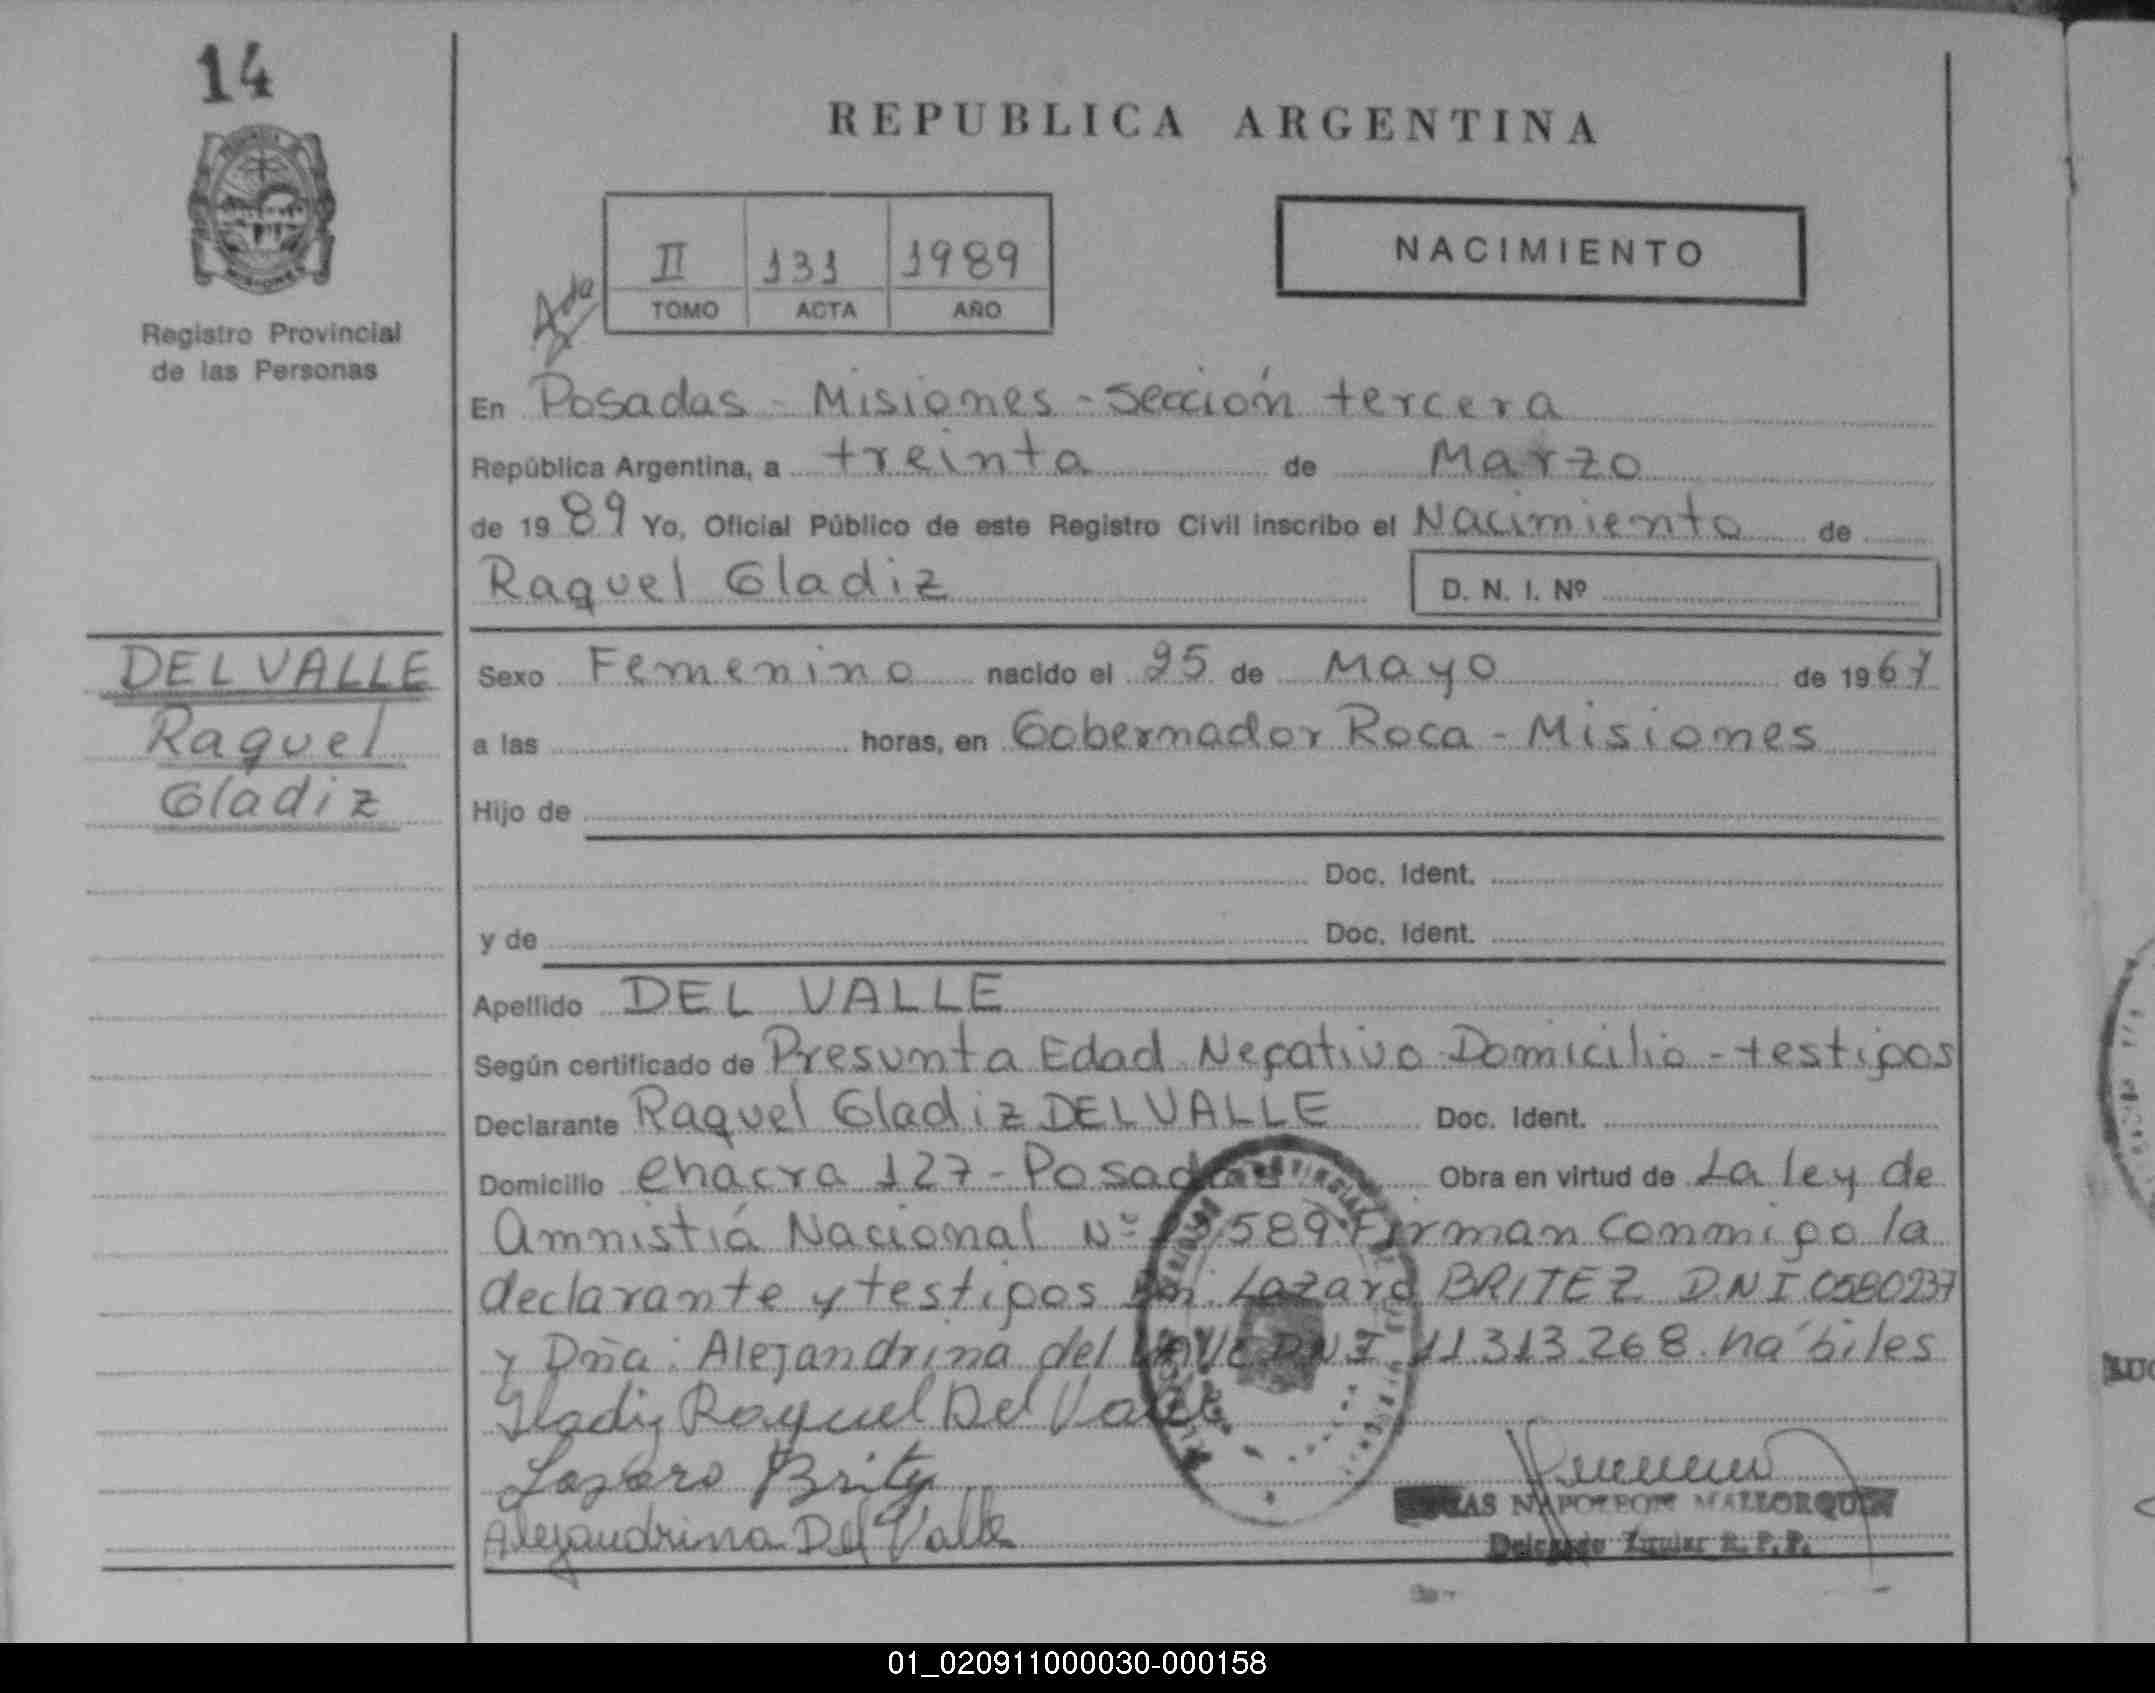 14
REPUBLICA ARGENTINA
II 131 1989
TOMO ACTA AÑO
NACIMIENTO
Registro Provincial
de las Personas
En Posadas - Misiones - sección tercera
República Argentina, a treinta de Marzo
de 1989 Yo, Oficial Público de este Registro Civil inscribo el Nacimiento de
Raquel Gladiz D. N. I. Nº
DEL VALLE
Raquel
Gladiz
Sexo Femenino nacido el 25 de Mayo de 1967
a las horas, en Gobernador Roca - Misiones
Hijo de
Doc. Ident.
y de Doc. Ident.
Apellido DEL VALLE
Según certificado de Presunta Edad Negativo Domicilio - testigos
Declarante Raquel Gladiz DEL VALLE Doc. Ident.
Domicilio chacra 127 - Posadas Obra en virtud de La ley de
Amnistiá Nacional Nº 589 Firman conmigo la
declarante y testigos Lazaro BRITEZ DNI 0580237
y Dña: Alejandrina del Valle DNI 11313.268 hábiles
Gladiz Raquel Del Valle
Lazaro Britez
Alejandrina Del Valle
NAPOLEON MALLORQUIN
Delegado Titular R. P. P.
01_020911000030-000158